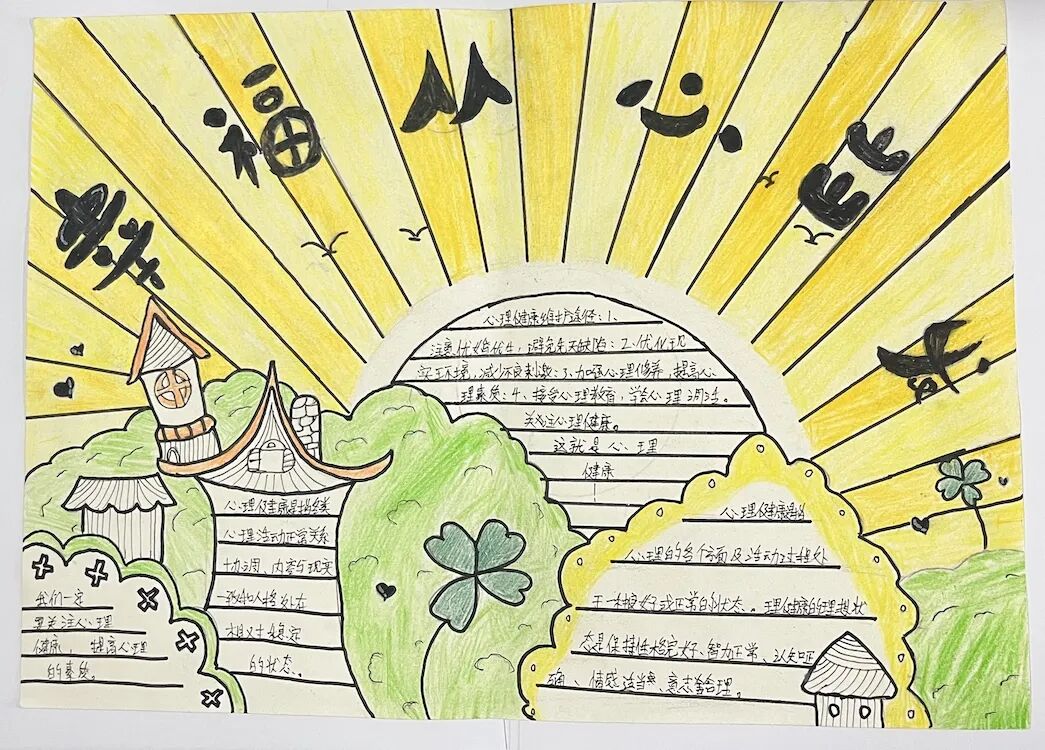 幸福从心开
心理健康维护途径:1、
注意优婚优生,避免先天缺陷:2、优化现
实环境,减少不良刺激:3、加强心理修养,提高心
理素质:4、接受心理教育,学会心理调适。
关注心理健康。
这就是心理
健康
心理健康是指各类
心理活动正常关系
协调、内容与现实
一致和人格处在
相对稳定
的状态。
我们一定
要关注心理
健康,提高心理
的素质。
心理健康是指
心理的各个方面及活动过程处
于一种良好或正常的状态。理健康的理想状
态是保持性格完好、智力正常、认知正
确、情感适当、意志合理。